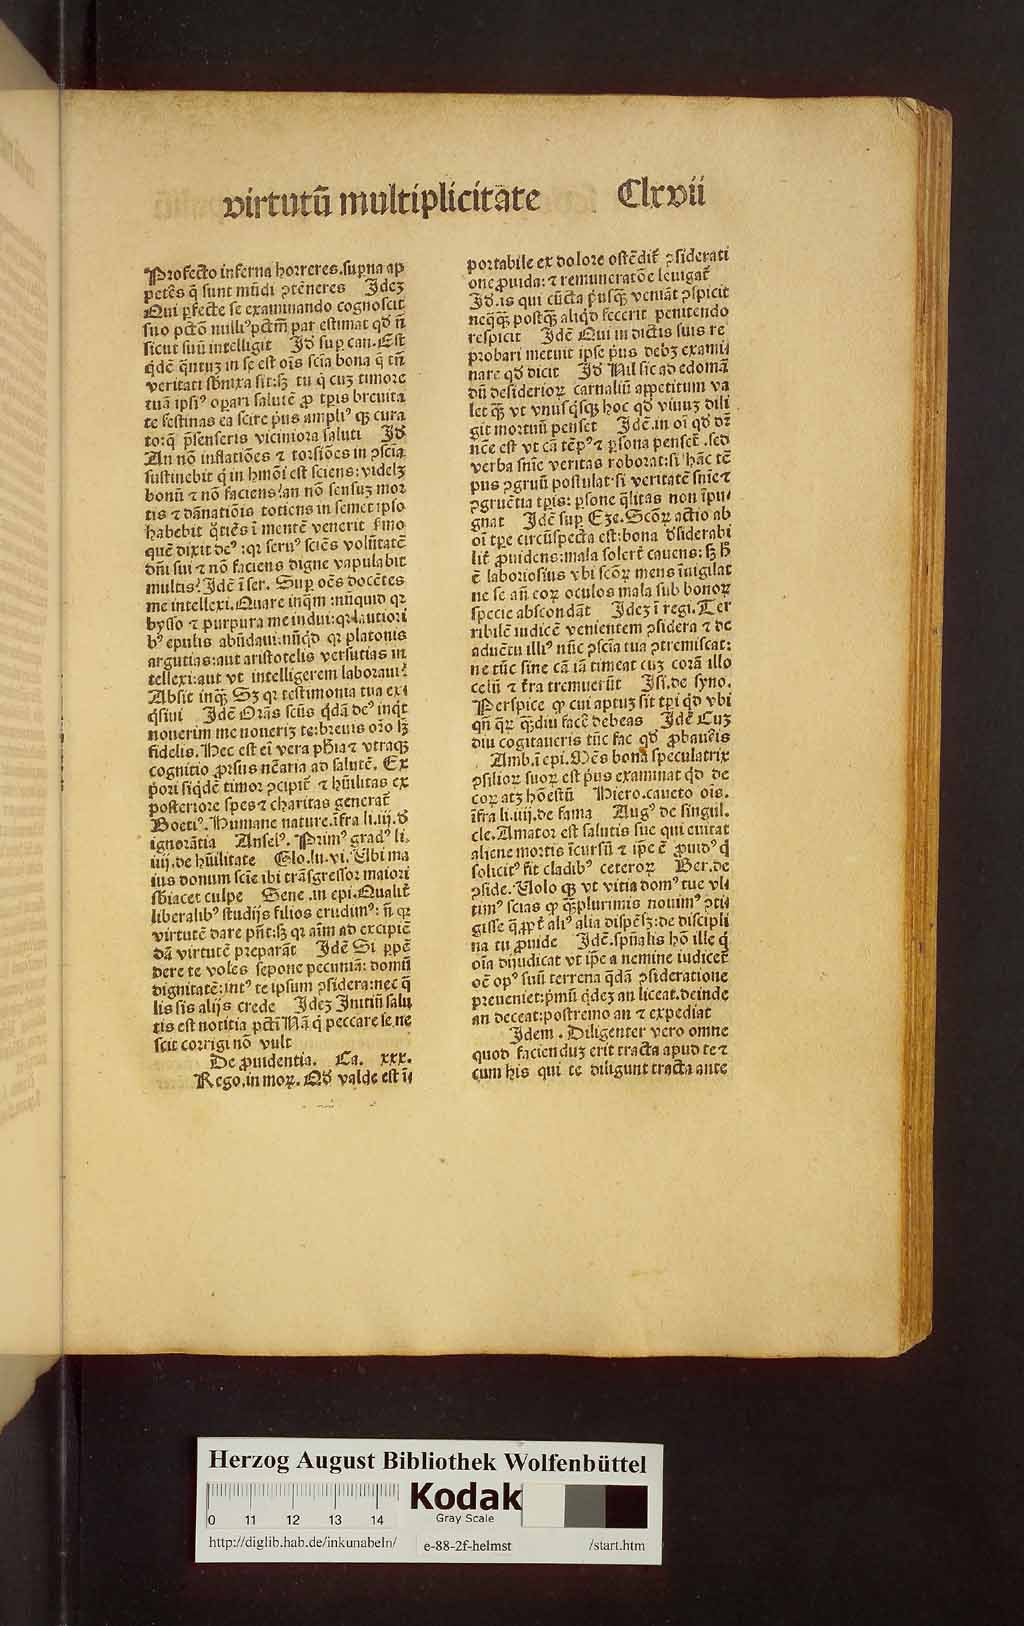 virtutū multiplicitate Clxvii
Profecto inferna horreres.supna ap
petēs q̄ sunt mūdi ꝯtēneres Idez
Qui ꝑfecte se examinando cognoscit
suo pctō nulliꝰ pctm̄ par estimat qđ nō
sicut suū intelligit Idē sup can. Est
qdē q̄ntuz in se est oīs scīa bona q̄ tn̄
veritati sbnixa sit:sꝫ tu q̄ cuz timore
tuā ipsiꝰ opari salutē ꝓ tpis breuita
te festinas ea scire pus ampliꝰ qꝫ cura
to:q̄ p̄senseris viciniora saluti Idē
An nō inflatiōes ⁊ torsiōes in ꝯscīa
sustinebit q̄ in hmōi est sciens:videlꝫ
bonū ⁊ nō faciens?an nō sensuz mor
tis ⁊ dānatiōis totiens in semet ipso
habebit q̄tiēs ī mentē venerit sermo
quē dixit deꝰ:qr seruꝰ sciēs volūtatē
dn̄i sui ⁊ nō faciens digne vapulabit
multis? Idē ī ser. Sup oēs docētes
me intellexi.Quare inqm̄:nūquid qr
bysso ⁊ purpura me indui:qr lautiori
bꝰ epulis abūdaui:nūqd qr platonis
argutias:aut aristotelis versutias in
tellexi:aut vt intelligerem laboraui?
Absit inqꝫ Sꝫ qr testimonia tua exi
q̄siui Idē Orās scūs q̄dā deꝰ inqt
nouerim me nouerim te:breuis orō lꝫ
fidelis. Hec est eī vera phīa ⁊ vtraqꝫ
cognitio ꝓrsus nēaria ad salutē. Ex
pori siqdē timor ꝯcipit ⁊ hūilitas ex
posteriore spes ⁊ charitas generat
Boetiꝰ. Humane nature.īfra li.iij.đ
ignorātia Anselꝰ. Primꝰ gradꝰ li.
iiij.de hūilitate Glo.lu.vi. Ubi ma
ius donum scīe ibi trāsgressor maiori
sbiacet culpe Sene.in epi.Qualit
liberalibꝰ studijs filios erudimꝰ:nō qr
virtutē dare pn̄t:sꝫ qr aīm ad excipiē
dā virtutē preparāt Idē Si ꝑpē
dere te voles sepone pecuniā: domū
dignitatē:intꝰ te ipsum ꝯsidera:nec q̄
lis sis alijs crede Idez Initiū salu
tis est notitia pctī Nā q̄ peccare se ne
scit corrigi nō vult
De ꝓuidentia. Ca. xxx.
Rego.in moꝝ. Qđ valde est ī
portabile ex dolore ostēdit ꝯsiderati
one ꝓuida: ⁊ remuneratōe leuigat
Idē.is qui cūcta pusqꝫ veniāt ꝯspicit
neqꝫ postqꝫ aliqd fecerit penitendo
respicit Idē Qui in dictis suis re
probari metuit ipse pus debꝫ exami
nare qđ dicit Idē Nil sic ad edomā
dū desiderioꝝ carnaliū appetitum va
let qꝫ vt vnusqsqꝫ hoc qđ viuuz dili
git mortuū penset Idē.in oī qđ dr̄
nēe est vt cā tēpꝰ ⁊ ꝑsona penset .sed
verba snīe veritas roborat:si hāc tē
pus ꝯgruū postulat:si veritatē snīe ⁊
ꝯgruētia tpis: ꝑsone q̄litas non īpu
gnat Idē sup Eze. Scōꝝ actio ab
oī tpe circūspecta est:bona đsiderabi
lit ꝓuidens:mala solert cauens:sꝫ h̄
ē laboriosius vbi scōꝝ mens īuigilat
ne se an̄ eoꝝ oculos mala sub bonoꝝ
specie abscondāt Idez ī regi.Ter
ribilē iudicē venientem ꝯsidera ⁊ de
aduētu illiꝰ nūc ꝯscīa tua ꝯtremiscat:
ne tūc sine cā iā timeat cuz corā illo
celū ⁊ tr̄a tremuerūt Isi.de syno.
Perspice ꝙ cui aptuz sit tpi qđ vbi
qn̄ q̄r qꝫdiu facē debeas Idē Cuz
diu cogitaueris tūc fac qđ ꝓbaueris
Amb.ī epi. Mēs bona speculatrix
ꝯsilioꝝ suoꝝ est pus examinat qđ de
coꝝ atꝫ hōestū Hiero.caueto oīs.
īfra li.iiij.de fama Augꝰ de singul.
cle.Amator est salutis sue qui euitat
aliene mortis īcursū ⁊ ipe ē ꝓuidꝰ q̄
solicitꝰ fit cladibꝰ ceteroꝝ Ber.de
ꝯside. Uolo qꝫ vt vitia domꝰ tue vli
timꝰ scias ꝙ qꝫplurimis nouimꝰ ꝯti
gisse q̄ꝓpt aliꝰ alia dispēsꝫ:de discipli
na tu ꝓuide Idē.spn̄alis hō ille q̄
oīa dijudicat vt ipe a nemine iudicet
oē opꝰ suū terrena q̄dā ꝯsideratione
preueniet:pmū qdez an liceat.deinde
an deceat:postremo an ⁊ expediat
Idem . Diligenter vero omne
quod faciendūz erit tracta apud te ⁊
cum his qui te diligunt tracta ante
Herzog August Bibliothek Wolfenbüttel
0 11 12 13 14
Kodak
Gray Scale
http://diglib.hab.de/inkunabeln/ e-88-2f-helmst /start.htm